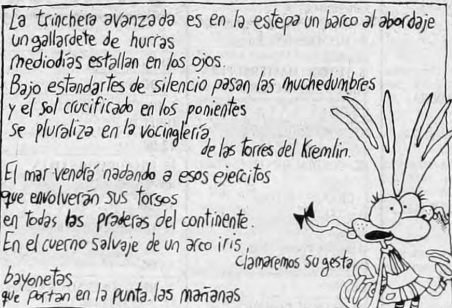 La trinchera avanzada es en la estepa un barco al abordaje
un gallardete de hurras
mediodías estallan en los ojos.
Bajo estandartes de silencio pasan las muchedumbres
y el sol crucificado en los ponientes
se pluraliza en la vocinglería
de las torres del Kremlin.
El mar vendrá nadando a esos ejercitos
que envolverán sus torsos
en todas las praderas del continente.
En el cuerno salvaje de un arco iris
clamaremos su gesta
bayonetas
que portan en la punta las mañanas